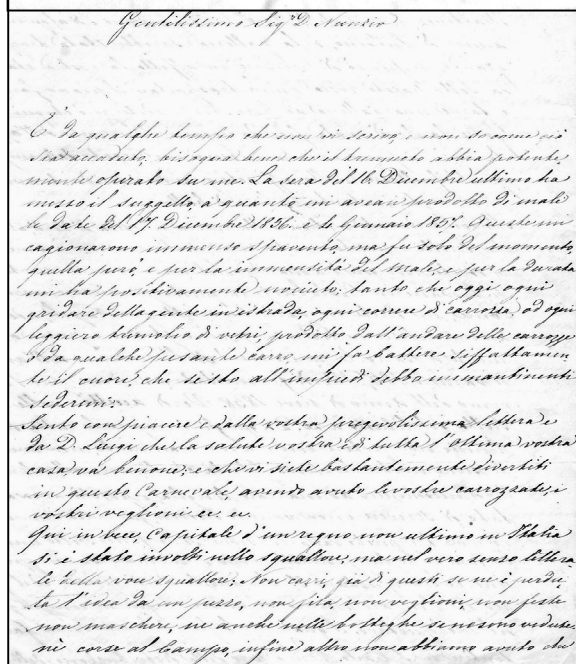 Gentilissimo Sigr D. Nunzio
È da qualche tempo che non vi scrivo, e non so come ciò
sia accaduto, bisogna bene che il tremuoto abbia potente
mente operato su me. La sera del 16. Dicembre ultimo ha
messo il suggello, a quanto mi avean prodotto di male
le date del 17. Dicembre 1856. e 4 Gennaio 1857. Queste mi
cagionarono immenso spavento, ma fu solo del momento,
quella però, e per la immensità del male, e per la durata
mi ha positivamente nociuto; tanto che oggi ogni
gridare della gente in istrada, ogni correre di carrozza, od ogni
leggiero tumolio di vetri, prodotto dall'andare delle carrozze
o da qualche pesante carro, mi fa battere siffattamen
te il cuore, che se sto all'impiedi debbo immantinenti
sedermi.
Sento con piacere e dalla vostra pregevolissima lettera e
da D. Luigi che la salute vostra e di tutta l'ottima vostra
casa va benone; e che vi siete bastantemente divertiti
in questo Carnevale, avendo avuto le vostre carrozzate, i
vostri veglioni ec. ec.
Qui invece, Capitale d'un regno non ultimo in Italia
si è stato involti nello squallore; ma nel vero senso lettera
le della voce squallore; Non carri, già di questi se ne è perdu
ta l'idea da un pezzo, non fila, non veglioni, non feste
non maschere, ne anche nelle botteghe se ne sono vedute.
nè corse al Campo, infine altro non abbiamo avuto che